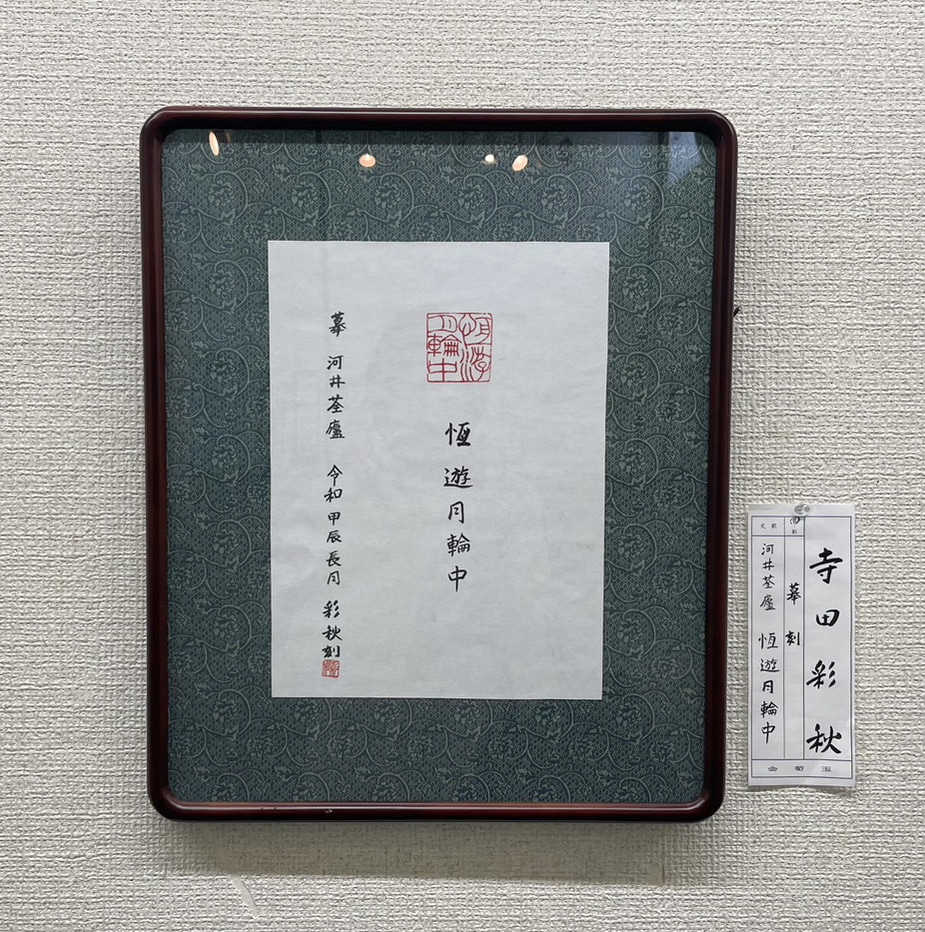 恆游
月輪中
恆遊月輪中
摹 河井荃廬 令和甲辰長月 彩秋刻
寺田彩秋
摹刻
釈文
河井荃廬 恆遊月輪中